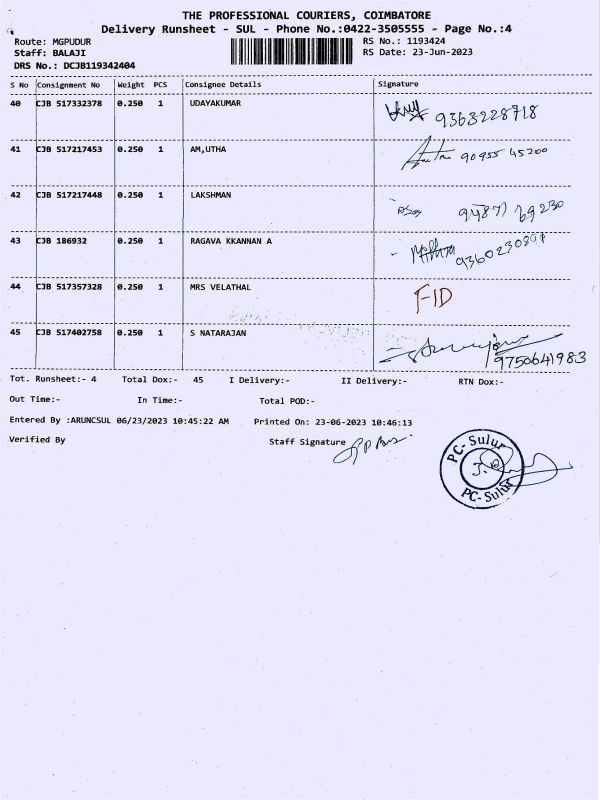 THE PROFESSIONAL COURIERS, COIMBATORE
Delivery Runsheet - SUL - Phone No.:0422-3505555 - Page No.:4
Route: MGPUDUR RS No.: 1193424
Staff: BALAJI RS Date: 23-Jun-2023
DRS No.: DCJB119342404
S No Consignment No Weight PCS Consignee Details Signature
40 CJB 517332378 0.250 1 UDAYAKUMAR 9363228718
41 CJB 517217453 0.250 1 AM,UTHA 90955 45200
42 CJB 517217448 0.250 1 LAKSHMAN 94871 69230
43 CJB 186932 0.250 1 RAGAVA KKANNAN A
44 CJB 517357328 0.250 1 MRS VELATHAL F-ID
45 CJB 517402758 0.250 1 S NATARAJAN 9750641983
Tot. Runsheet:- 4 Total Dox:- 45 I Delivery:- II Delivery:- RTN Dox:-
Out Time:- In Time:- Total POD:-
Entered By :ARUNCSUL 06/23/2023 10:45:22 AM Printed On: 23-06-2023 10:46:13
Verified By Staff Signature
PC- Sulur
PC- Sulur